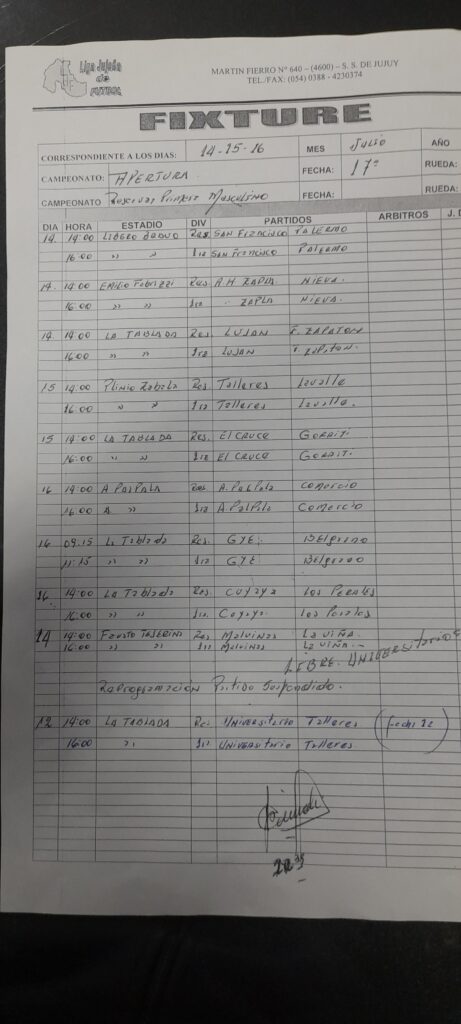 Liga Jujeña
de
FUTBOL
MARTIN FIERRO Nº 640 – (4600) – S. S. DE JUJUY
TEL./FAX: (054) 0388 - 4230374
FIXTURE
CORRESPONDIENTE A LOS DIAS: 14-15-16 MES Julio AÑO
CAMPEONATO: APERTURA. FECHA: 17º RUEDA:
CAMPEONATO Reserva, Primera Masculino FECHA: RUEDA:
DIA HORA ESTADIO DIV PARTIDOS ARBITROS J. D
14 14:00 Res. SAN FRANCISCO PALERMO
16:00 " " 1ra SAN FRANCISCO PALERMO
14 14:00 Emilio Fabrizzi Res. A.H. ZAPLA NIEVA.
16:00 " " 1ra " ZAPLA NIEVA.
14 14:00 LA TABLADA Res. LUJAN
16:00 " " 1ra LUJAN
15 14:00 Plinio Zabala Res. Talleres Lavalle
16:00 " " 1ra Talleres Lavalle.
15 14:00 LA TABLADA Res. EL CRUCE GORRITI.
16:00 " " 1ra EL CRUCE GORRITI.
16 14:00 A PALPALA Res A. Palpala COMERCIO
16:00 A " 1ra A. Palpala Comercio
16 09:15 La Tablada Res. GYE. Belgrano
11:15 " " 1ra GYE Belgrano
16 14:00 La Tablada Res. Cuyaya Los Perales
16:00 " " 1ra. Cuyaya. Los Perales
14 14:00 Fausto Res Malvinas LA VIÑA.
16:00 " " 1ra Malvinas LA VIÑA.
LIBRE. UNIVERSITARIO
Reprogramación Partido Suspendido.
12 14:00 LA TABLADA Res. Universitario Talleres (Fecha 12
16:00 " 1ra UNIVERSITARIO Talleres